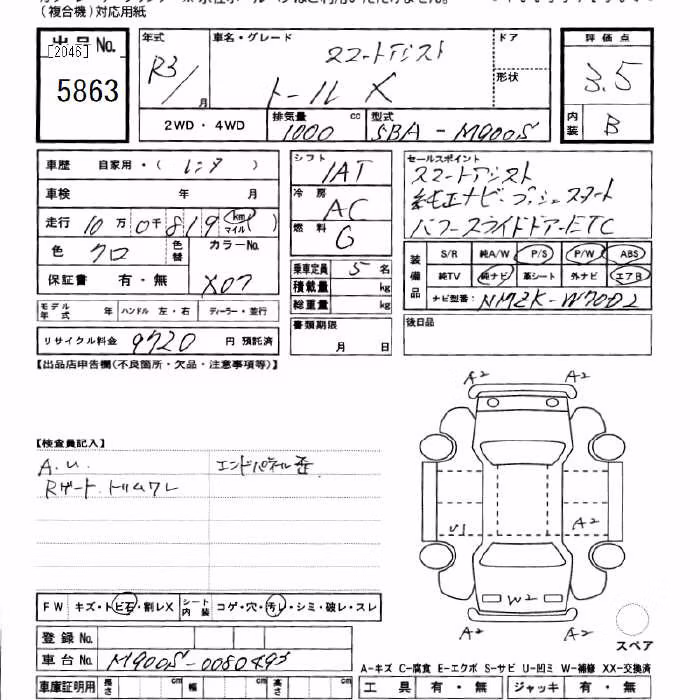 (複合機)対応用紙
出品No.
[2046]
5863
年式
R3/
月
車名・グレード
スマートアシスト
トール X
ドア
形状
評価点
3.5
内装
B
2WD・4WD
排気量
cc
1000
型式
5BA-M900S
車歴 自家用・( レンタ )
車検 年 月
走行 10万0千819 km マイル ( )
色 クロ
色替
カラーNo.
X07
保証書 有・無
モデル年式 年 ハンドル 左・右 ディーラー・並行
リサイクル料金 9720 円 預託済
シフト
IAT
冷房
AC
燃料
G
乗車定員 5 名
積載量 kg
総重量 kg
書類期限
月 日
セールスポイント
スマートアシスト
純正ナビ・プッシュスタート
パワースライドドアーETC
装備品
S/R 純A/W P/S P/W ABS
純TV 純ナビ 革シート 外ナビ エアB
ナビ型番: NMZK-W70D
後日品
【出品店申告欄(不良箇所・欠品・注意事項等)】
【検査員記入】
A.U. エンドパネル歪
Rゲート.トリムワレ
A2 A2
U1 A2
W2
A2 A2
スペア
FW キズ・トビ石・割レX シート内装 コゲ・穴・汚レ・シミ・破レ・スレ
登録No.
車台No. M900S-0080495
車庫証明用 長さ cm 幅 cm 高さ cm
A-キズ C-腐食 E-エクボ S-サビ U-凹ミ W-補修 XX-交換済
工具 有・無 ジャッキ 有・無